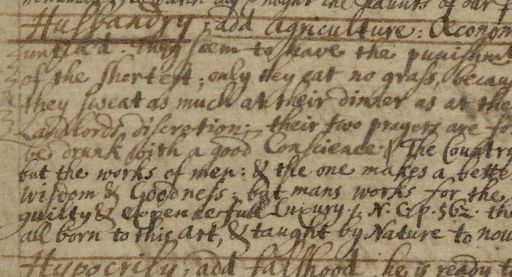 Husbandry, add Agriculture: Oeconom
they seem to have the punishm
of the Shortest; only they eat no grass, becau
they sweat as much at their dinner as at the
Landlords discretion; their two prayers are fo
be drunk with a good Conscience: The Country
but the works of men: & the one makes a bette
Wisdom & Goodness: but mans works for the
guilty & expencefull Luxury; N. C. p. 562. the
all born to this Art, & taught by Nature to nou
Hypocrisy, add falshood: he is ready t